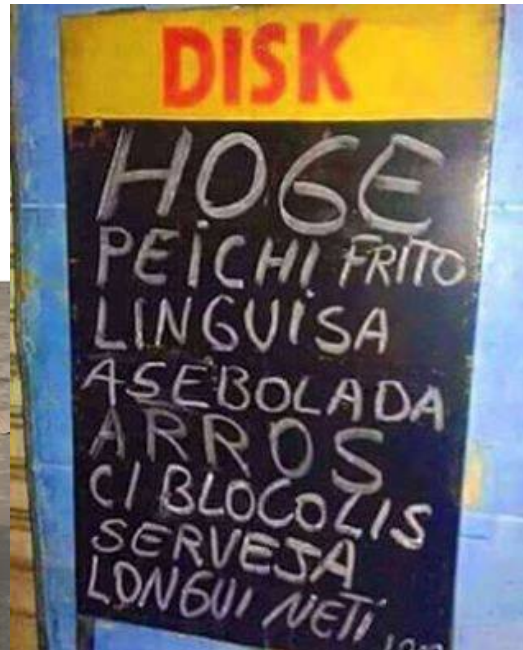 DISK
HOGE
PEICHI FRITO
LINGUISA
ASEBOLADA
ARROS
C/ BLOCOLIS
SERVEJA
LONGUI NETI